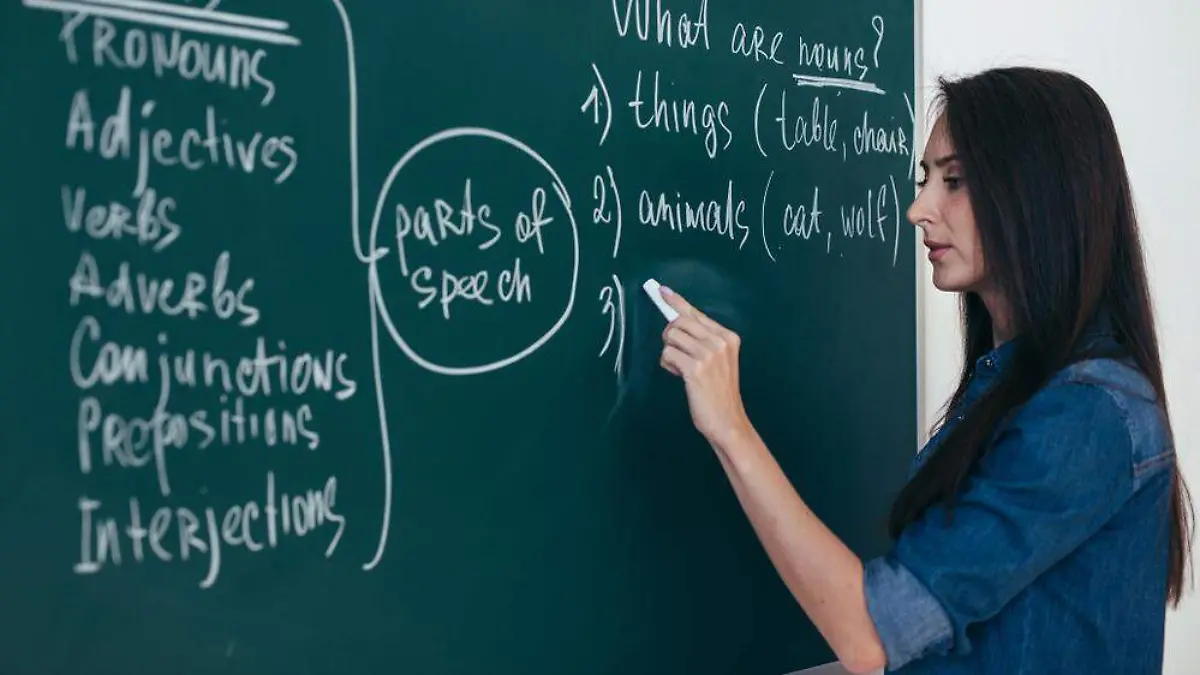 Pronouns
Adjectives
Verbs
Adverbs
Conjunctions
Prepositions
Interjections
parts of
speech
What are nouns?
1) things (table, chair)
2) animals (cat, wolf)
3)